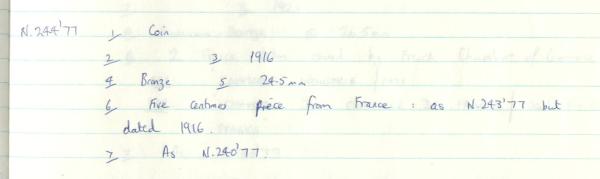 N.244'77 1 Coin
2 3 1916
4 Bronze 5 24.5mm
6 Five centimes piece from France : as N.243'77 but
dated 1916.
7 As N.240'77.